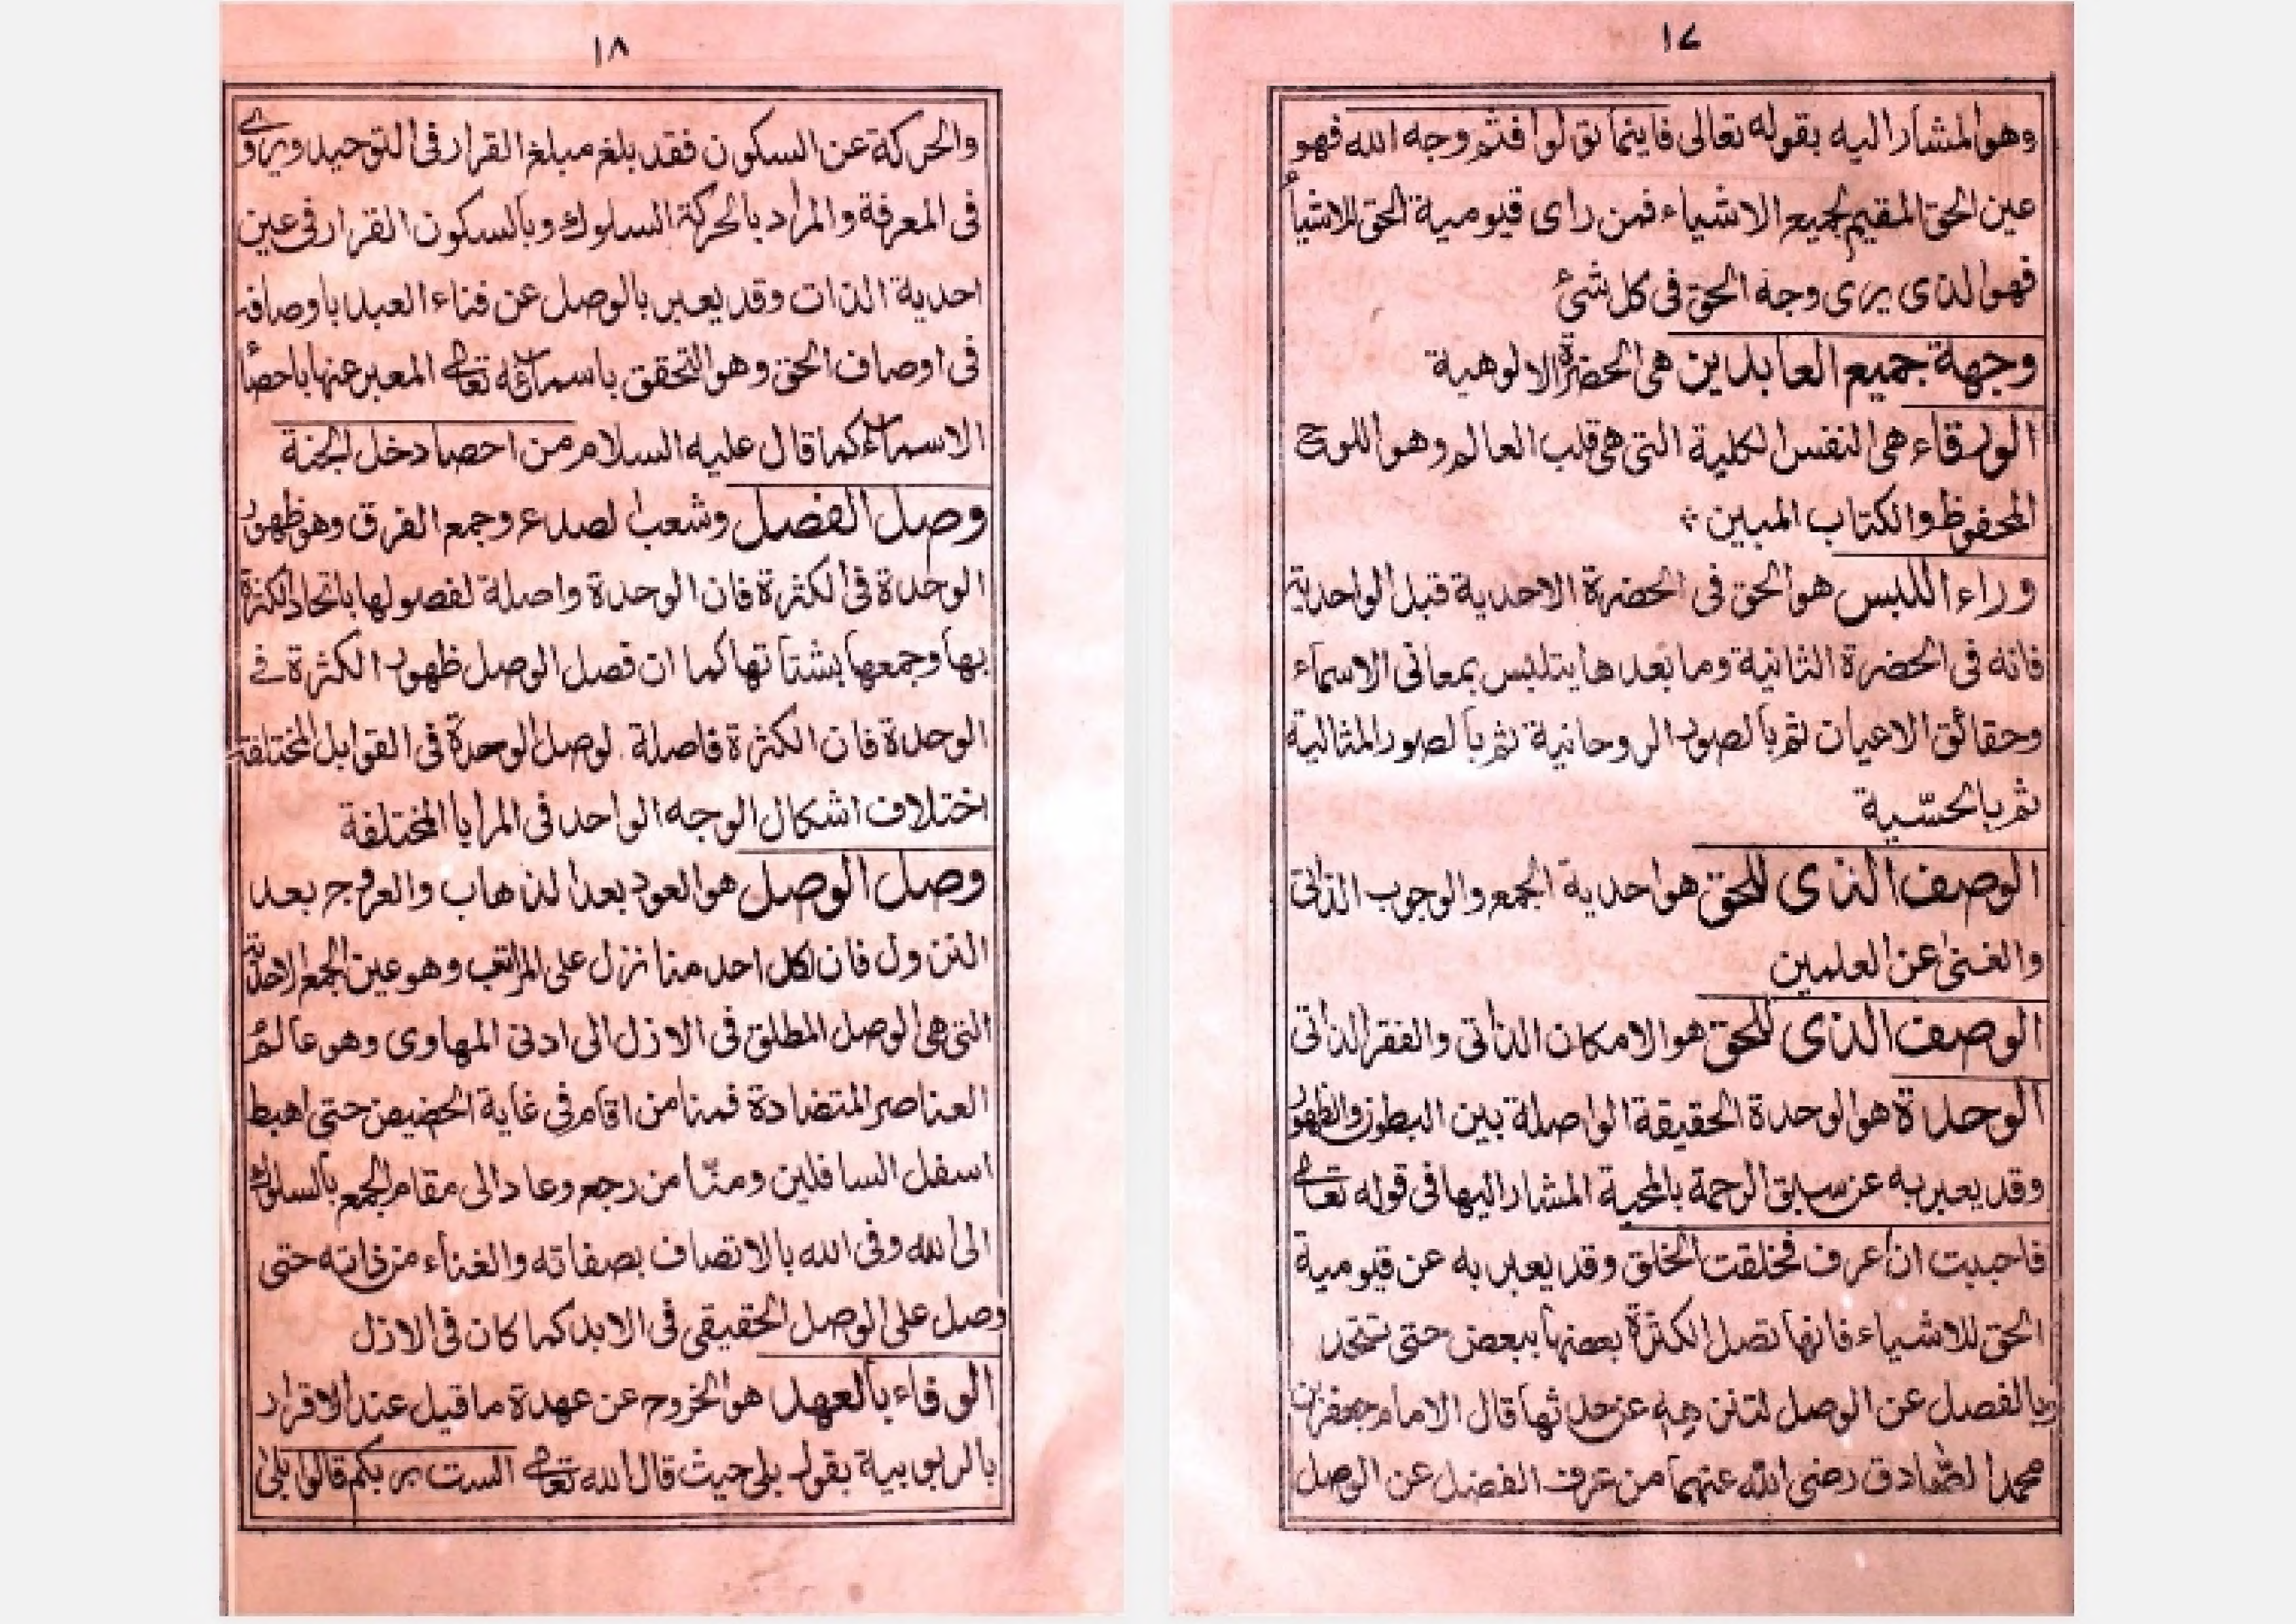 ١٧
وهوالمشار اليه بقوله تعالى فاينما تولوا فثم وجه الله فهو
عين الحق المقيم لجميع الاشياء فمن راى قيومية الحق للاشياء
فهوالذى يرى وجه الحق فى كل شئ
وجهة جميع العابدين هى الحضرة الالوهية
الورقاء هى النفس الكلية التى هى قلب العالم وهو اللوح
المحفوظ والكتاب المبين
وراء اللبس هو الحق فى الحضرة الاحدية قبل الواحدية
فانه فى الحضرة الثانية وما بعدها يتلبس بمعانى الاسماء
وحقائق الاعيان ثم بالصور الروحانية ثم بالصور المثالية
ثم بالحسّية
الوصف الذى للحق هو احدية الجمع والوجوب الذاتى
والغنى عن العلمين
الوصف الذى للحق هو الامكان الذاتى والفقر الذاتى
الوحدة هو الوحدة الحقيقة الواصلة بين البطون والظهور
وقد يعبر به عن سبق الرحمة بالمحبة المشار اليها فى قوله تعالى
فاحببت ان اعرف فخلقت الخلق وقد يعبر به عن قيومية
الحق للاشياء فانها تصل الكثرة بعضها ببعض حتى تتحد
وبالفصل عن الوصل لتنزهه عن حدثها قال الامام جعفر بن
محمد الصّادق رضى الله عنهما من عرف الفضل عن الوصل
١٨
والحركة عن السكون فقد بلغ مبلغ القرار فى التوحيد ويروى
فى المعرفة والمراد بالحركة السلوك وبالسكون القرار فى عين
احدية الذات وقد يعبر بالوصل عن فناء العبد باوصافه
فى اوصاف الحق وهو التحقق باسمائه تعالى المعبر عنها باحصأ
الاسماء كما قال عليه السلام من احصا دخل الجنة
وصل الفضل وشعب الصدع وجمع الفرق وهو ظهور
الوحدة فى الكثرة فان الوحدة واصلة لفصولها باتحاد الكثرة
بها وجمعها بشتاتها كما ان فصل الوصل ظهور الكثرة فى
الوحدة فان الكثرة فاصلة لوصل الوحدة فى القوابل المختلفة
اختلاف اشكال الوجه الواحد فى المرايا المختلفة
وصل الوصل هو العود بعد الذهاب والعروج بعد
النزول فان لكل احد منا نزل على المراتب وهو عين الجمع الاحدية
التى هى الوصل المطلق فى الازل الى ادنى المهاوى وهو عالم
العناصر المتضادة فمنا من اقام فى غاية الحضيض حتى اهبط
اسفل السافلين ومنّا من رجع وعاد الى مقام الجمع بالسلوك
الى الله وفى الله بالاتصاف بصفاته والغناء من ذاته حتى
وصل على الوصل الحقيقى فى الابد كما كان فى الازل
الوفاء بالعهد هو الخروج عن عهدة ما قيل عند الاقرار
بالربوبية بقول بلى حيث قال الله تعالى الست بربكم قالوا بلى